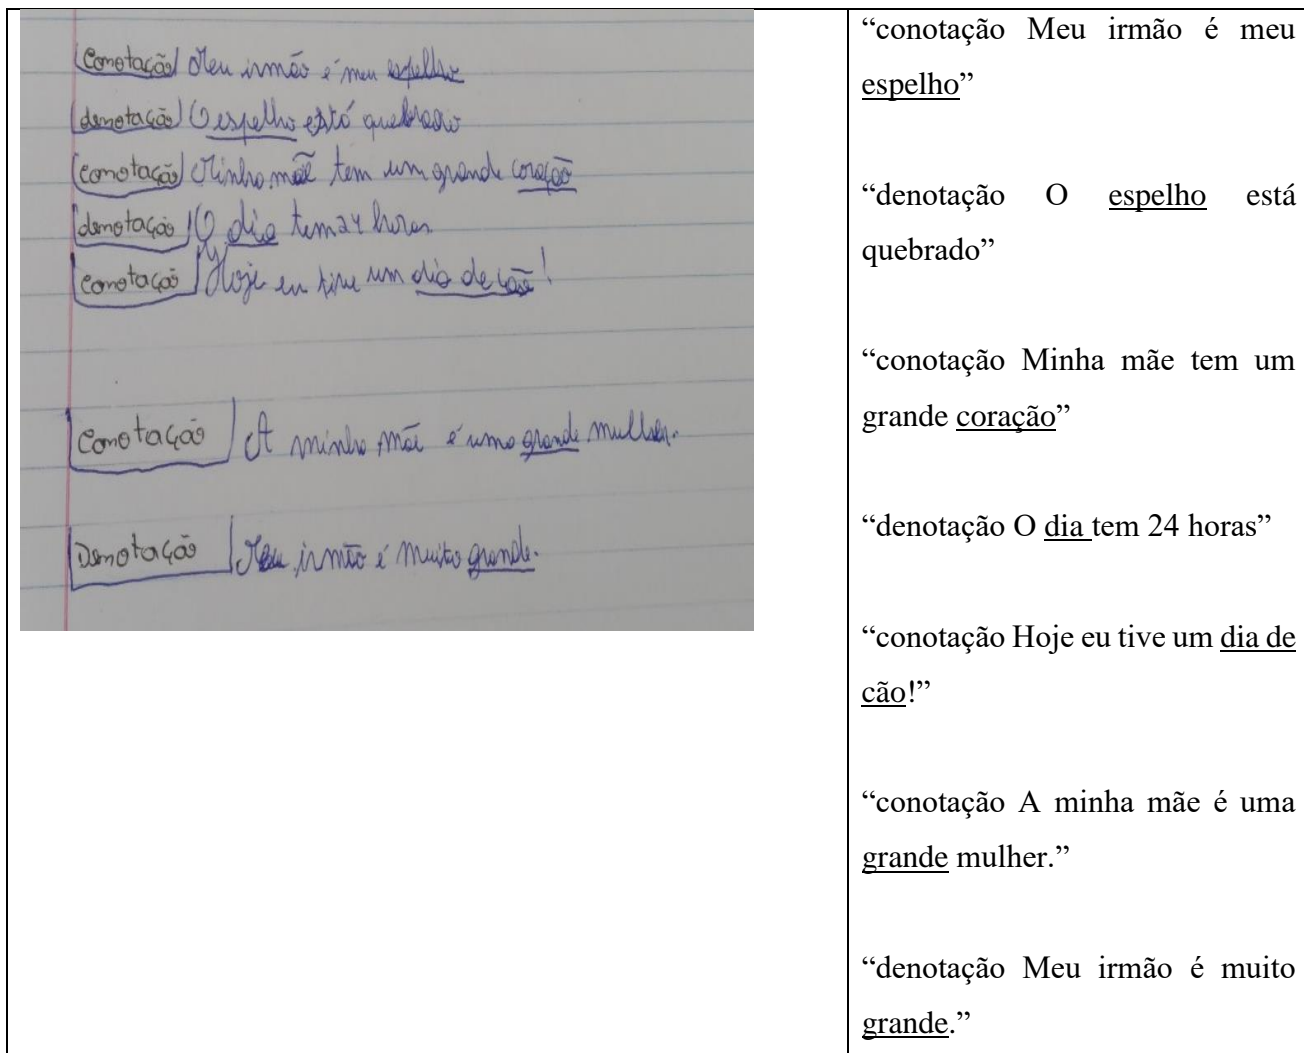 Conotação Meu irmão é meu espelho
denotação O espelho está quebrado
Conotação Minha mãe tem um grande coração
denotação O dia tem 24 horas.
Conotação Hoje eu tive um dia de cão!
Conotação A minha mãe é uma grande mulher.
Denotação Meu irmão é muito grande.
“conotação Meu irmão é meu
espelho”
“denotação O espelho está
quebrado”
“conotação Minha mãe tem um
grande coração”
“denotação O dia tem 24 horas”
“conotação Hoje eu tive um dia de
cão!”
“conotação A minha mãe é uma
grande mulher.”
“denotação Meu irmão é muito
grande.”